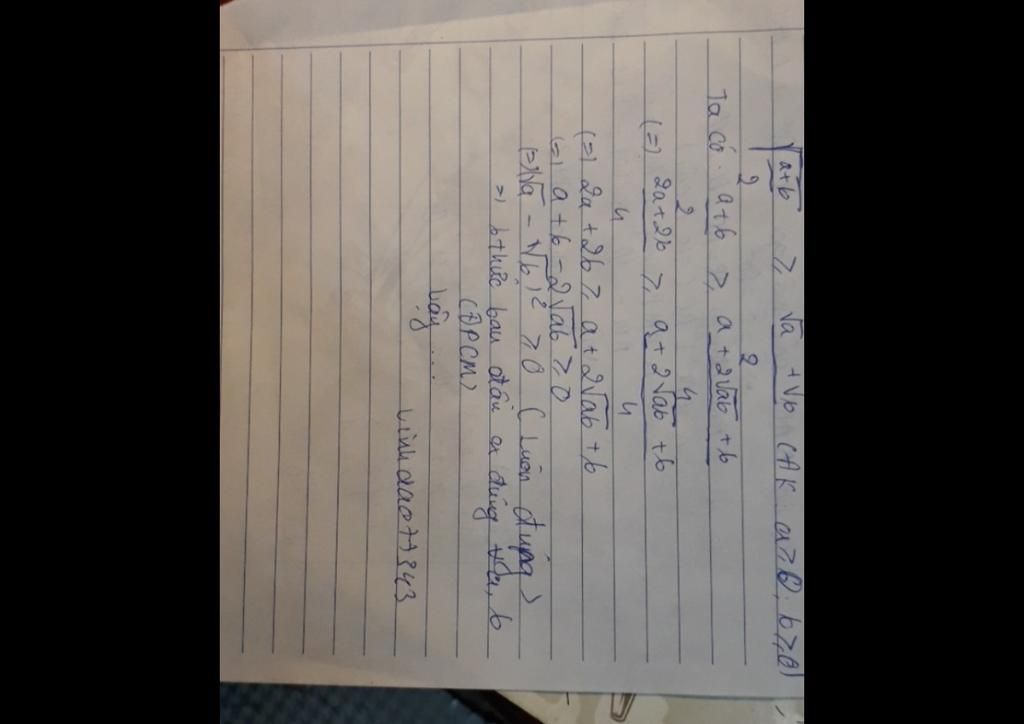 √(a+b)/2 ≥ (√a + √b)/2 (ĐK: a≥0; b≥0)
Ta có: (a+b)/2 ≥ (a+2√ab+b)/4
(=) (2a+2b)/4 ≥ (a+2√ab+b)/4
(=) 2a+2b ≥ a+2√ab+b
(=) a+b-2√ab ≥ 0
(=) (√a-√b)² ≥ 0 (luôn đúng)
=) bthức ban đầu đúng ∀a, b
(ĐPCM)
Vậy ....
vinhdao77343